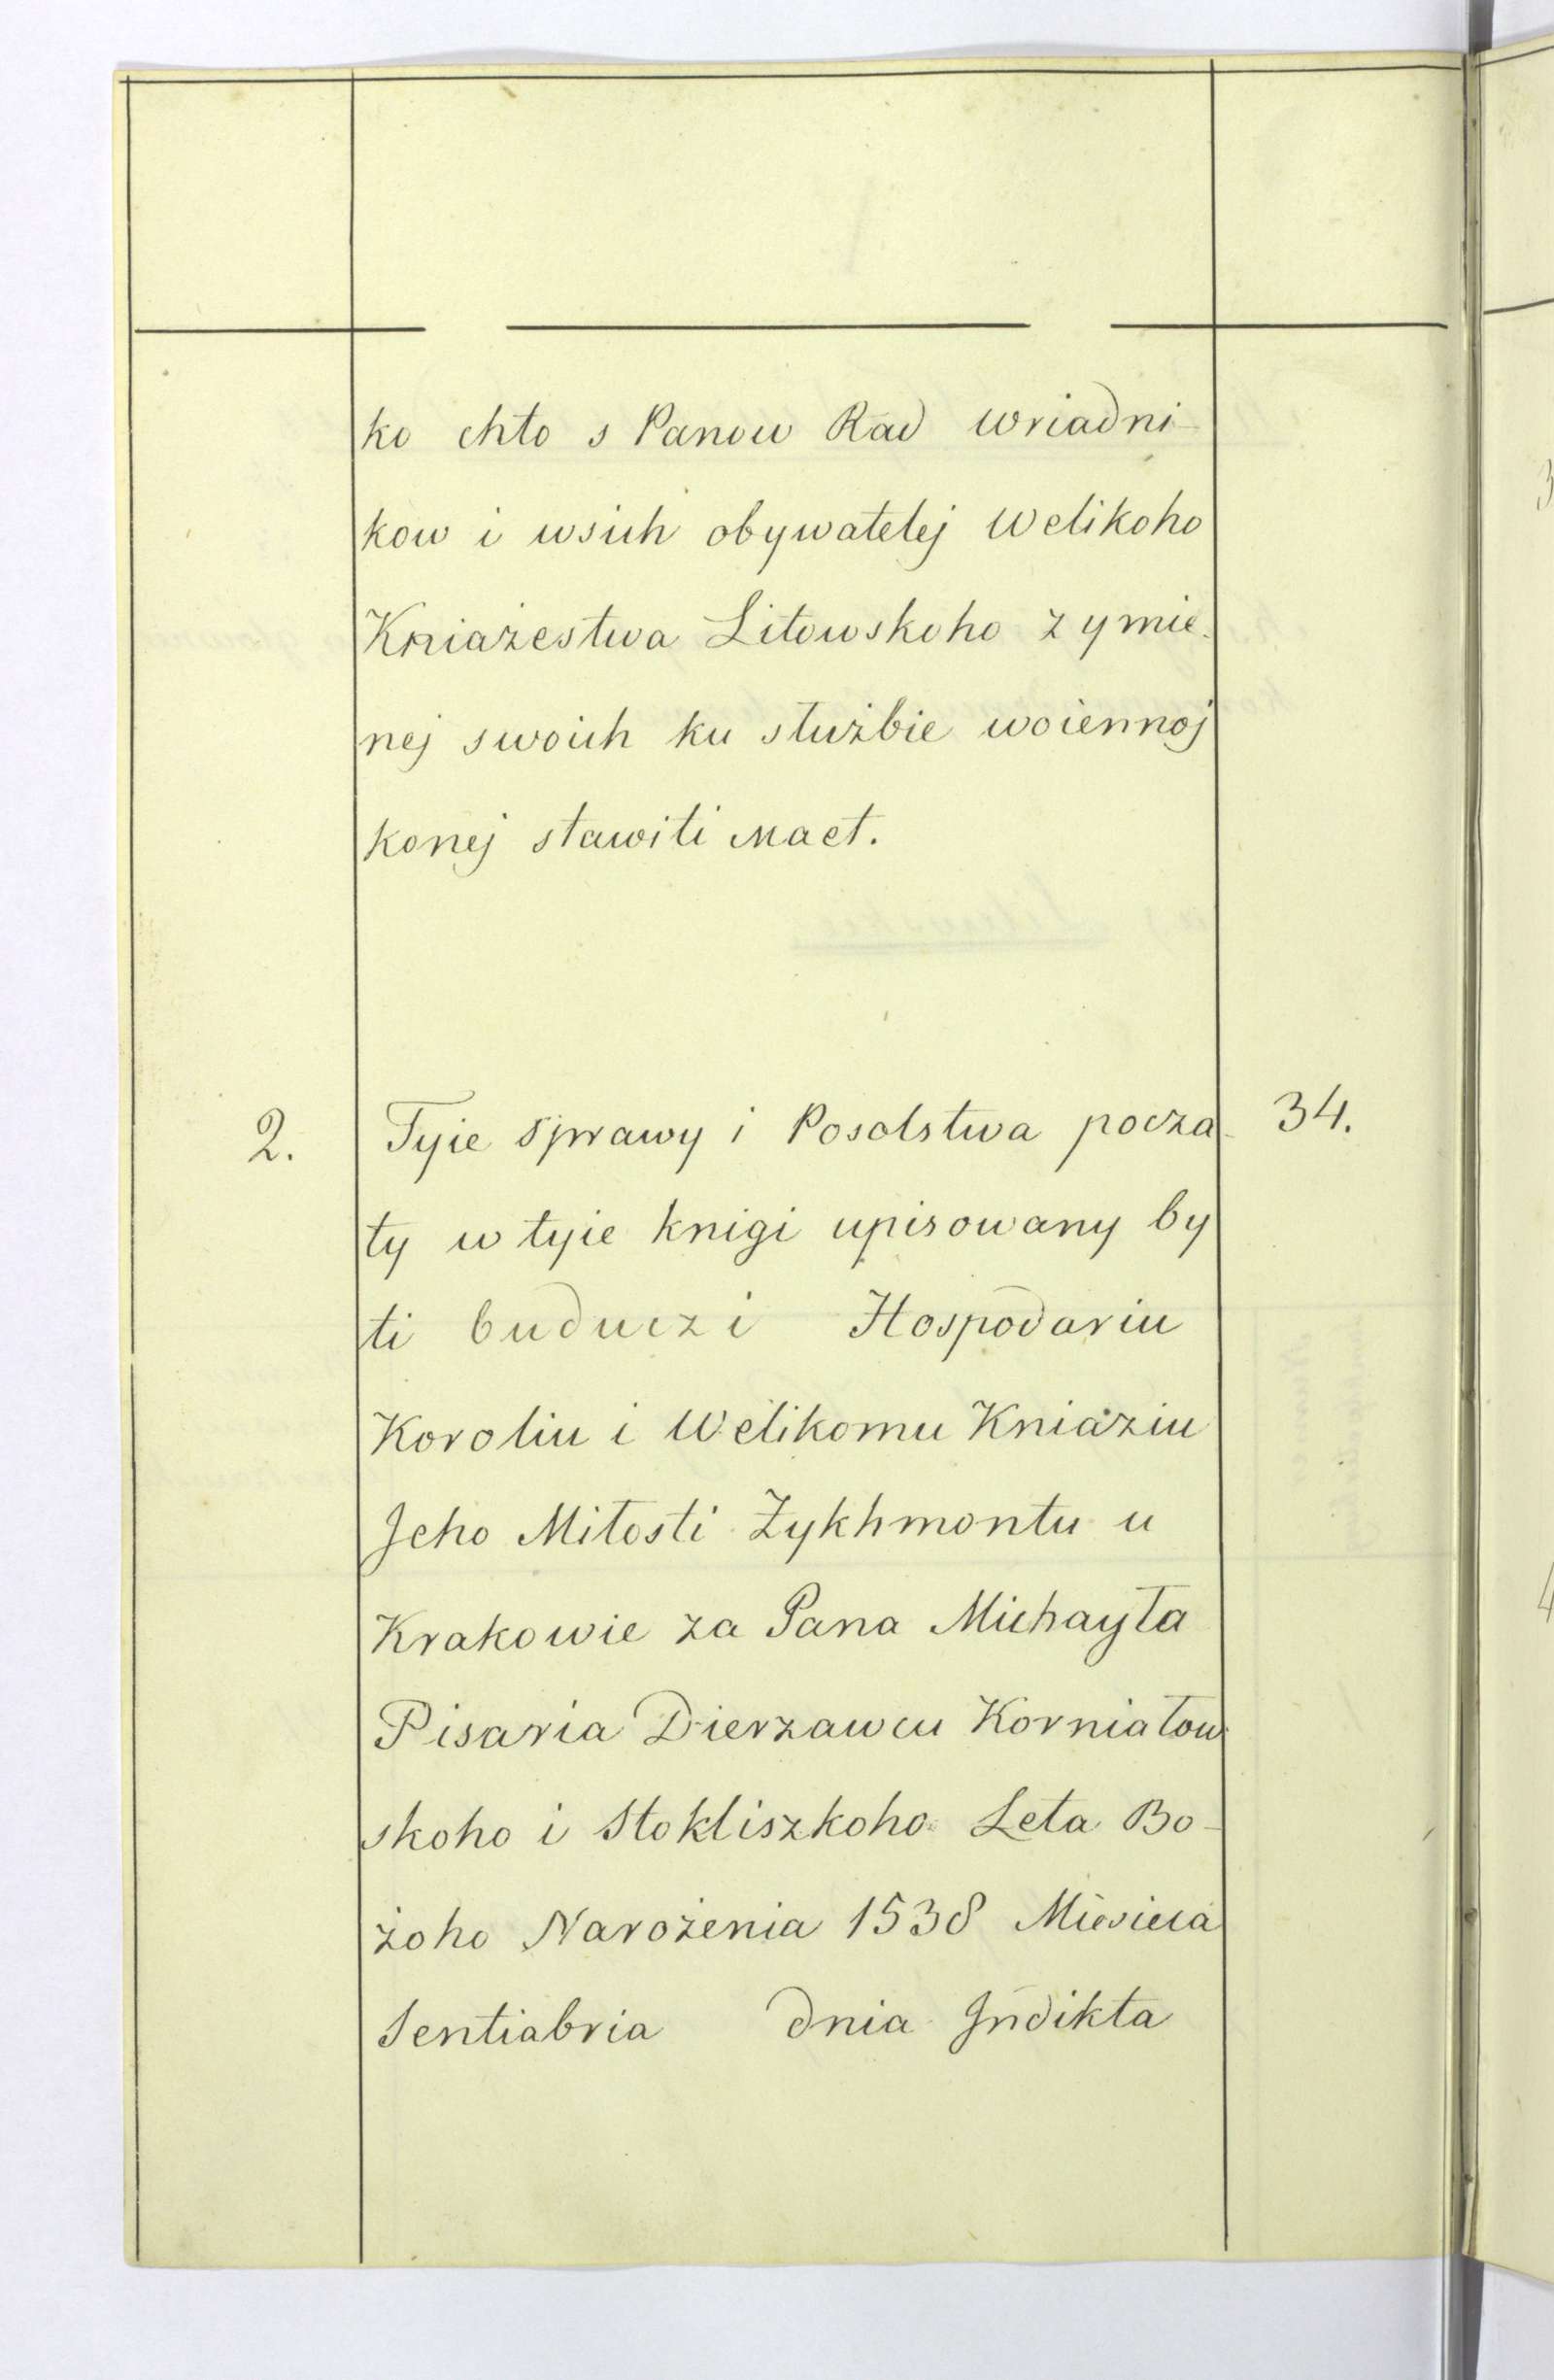 ko chto s Panow Rad Wriadni-
kow i wsich obywatelej Welikoho
Kniażestwa Litowskoho z ymie-
nej swoich ku służbie woiennoj
konej stawiti maet.
2. Tyie sprawy i Posolstwa pocza- 34.
ty w tyie knigi upisowany by
ti buduczi Hospodariu
Koroliu i Welikomu Kniaziu
Jeho Miłosti Żykhmontu u
Krakowie za Pana Michayła
Pisaria Dierzawcu Korniałow-
skoho i Stokliszkoho Leta Bo-
żoho Narożenia 1538 Miesieca
Sentiabria dnia Indikta